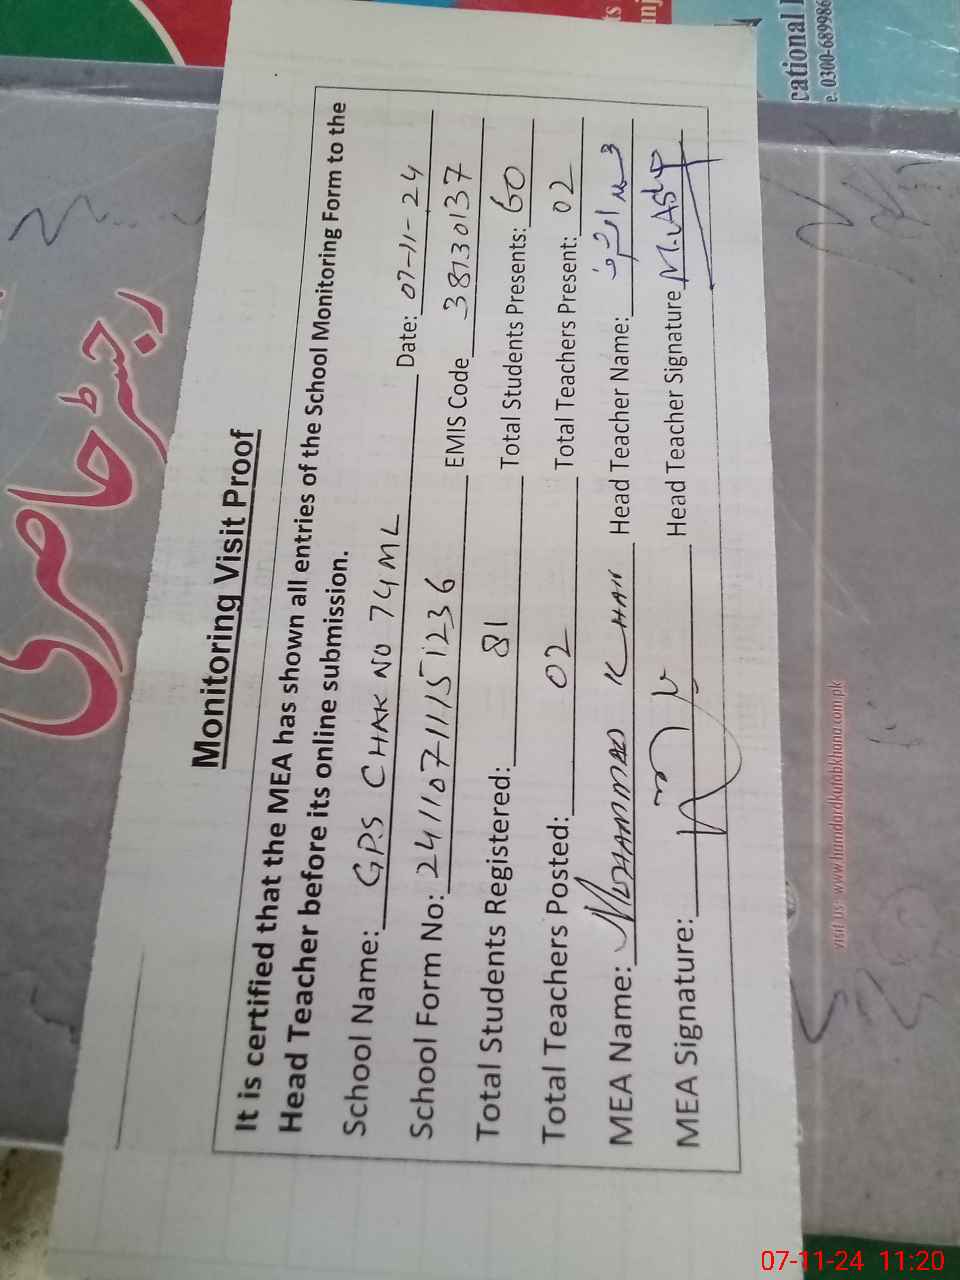 Monitoring Visit Proof
It is certified that the MEA has shown all entries of the School Monitoring Form to the
Head Teacher before its online submission.
School Name: G.P.S CHAK NO 74 ML Date: 07-11-24
School Form No: 241107111551236 EMIS Code 38130137
Total Students Registered: 81 Total Students Presents: 60
Total Teachers Posted: 02 Total Teachers Present: 02
MEA Name: MUHAMMAD KHAN Head Teacher Name:
MEA Signature: Head Teacher Signature
رجسٹر حاضری
visit us: www.hamdardkutabkhana.com.pk
cational
e. 0300-689986
07-11-24 11:20